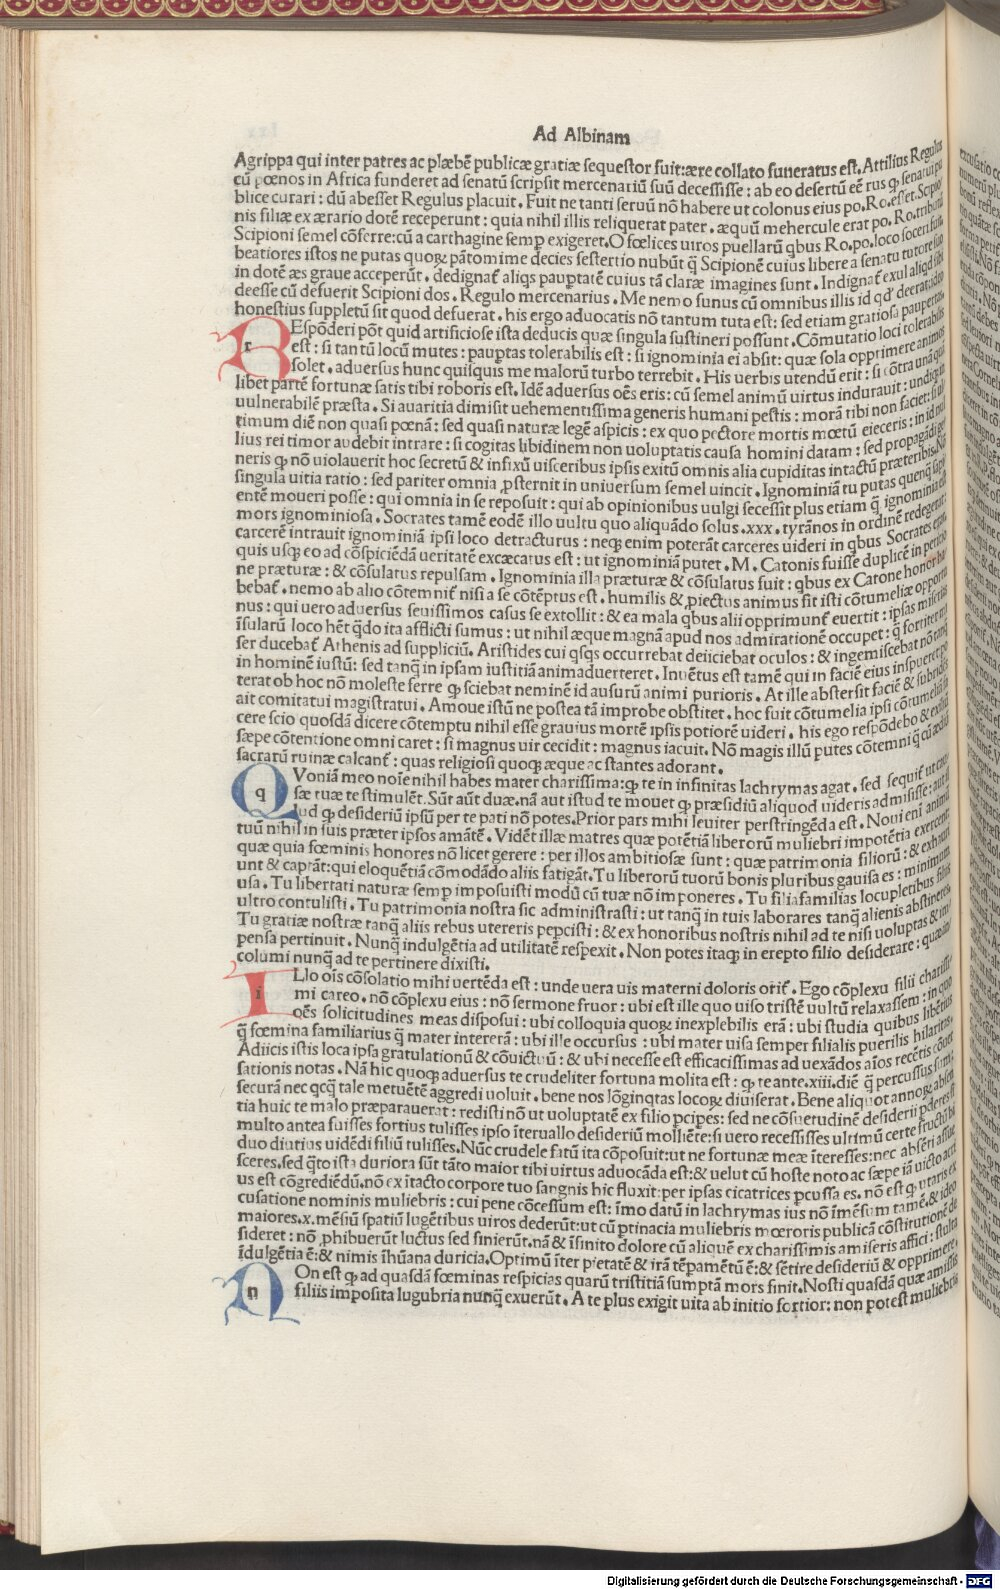 Ad Albinam
Agrippa qui inter patres ac plæbē publicæ gratiæ sequestor fuit:ære collato funeratus est. Attilius Regulus
cū pœnos in Africa funderet ad senatū scripsit mercenariū suū decessisse : ab eo desertū eē rus
blice curari : dū abesset Regulus placuit. Fuit ne tanti seruū nō habere ut colonus eius po. Ro. esset. Scipio
nis filiæ ex ærario dotē receperunt : quia nihil illis reliquerat pater. æquū mehercule erat po. Ro. tributū
Scipioni semel cōferre:cū a carthagine semp exigeret. O fœlices uiros puellarū qbus Ro. po. loco soceri fuit.
beatiores istos ne putas quorum pātomimæ decies sestertio nubūt q̄ Scipionē cuius libere a senatu tutore suo
in dotē æs graue acceperūt. dedignat̄ aliqs pauptatē cuius tā claræ imagines sunt. Indignat̄ exul aliqd sibi
deesse cū defuerit Scipioni dos. Regulo mercenarius. Me nemo funus cū omnibus illis id qd' deerat:ideo
honestius suppletū sit quod defuerat. his ergo aduocatis nō tantum tuta est: sed etiam gratiosa paupertas.
r Espōderi pōt quid artificiose ista deducis quæ singula sustineri possunt. Cōmutatio loci tolerabilis
est : si tantū locū mutes : pauptas tolerabilis est : si ignominia ei absit: quæ sola opprimere animos
solet. aduersus hunc quisquis me malorū turbo terrebit. His uerbis utendū erit : si cōtra unā quā
libet partē fortunæ satis tibi roboris est. Idē aduersus oēs eris: cū semel animū uirtus indurauit : undiq̄
uulnerabilē præsta. Si auaritia dimisit uehementissima generis humani pestis : morā tibi non faciet:
timum diē non quasi pœnā: sed quasi naturæ legē aspicis : ex quo pectore mortis mœtū eieceris : in id nul
lius rei timor audebit intrare : si cogitas libidinem non uoluptatis causa homini datam : sed propagādi ge
neris quem nō uiolauerit hoc secretū & infixū uisceribus ipsis exitū omnis alia cupiditas intactū præteribit. Nō
singula uitia ratio : sed pariter omnia psternit in uniuersum semel uincit. Ignominiā tu putas quenq̄ sapi
entē moueri posse : qui omnia in se reposuit : qui ab opinionibus uulgi secessit plus etiam q̄ ignominia est
mors ignominiosa. Socrates tamē eodē illo uultu quo aliquādo solus .xxx. tyrānos in ordinē redegerat:
carcerē intrauit ignominiā ipsi loco detracturus : neq; enim poterāt carceres uideri in qbus Socrates erat.
quis usq; eo ad cōspiciēdā ueritatē excæcatus est : ut ignominiā putet. M. Catonis fuisse duplicē in petitio
ne præturæ : & cōsulatus repulsam. Ignominia illa præturæ & cōsulatus fuit : qbus ex Catone honor ha
bebat̄. nemo ab alio cōtemnit̄ nisi a se cōtēptus est. humilis & piectus animus sit isti cōtumeliæ opportu
nus : qui uero aduersus seuissimos casus se extollit : & ea mala qbus alii opprimunt̄ euertit : ipsas miserias
īsularū loco hēt qdo ita afflicti sumus : ut nihil æque magnā apud nos admirationē occupet : q̄ fortiter mi
ser ducebat̄ Athenis ad suppliciū. Aristides cui qsqs occurrebat deiiciebat oculos : & ingemiscebat nō tanq̄
in hominē iustū: sed tanq̄ in ipsam iustitiā animaduerteret. Inuētus est tamē qui in faciē eius inspueret: po
terat ob hoc nō moleste ferre quod sciebat neminē id ausurū animi purioris. At ille abstersit faciē & subridēs
ait comitatui magistratui. Amoue istū ne postea tā improbe obstitet. hoc fuit cōtumelia ipsi cōtumeliā fa
cere scio quosdā dicere cōtemptu nihil esse grauius mortē ipsis potiorē uideri. his ego respōdebo & exiliū
sæpe cōtentione omni caret : si magnus uir cecidit : magnus iacuit. Nō magis illū putes cōtemni q̄ cū ædiū
sacrarū ruinæ calcant̄ : quas religiosi quoq; æque ac stantes adorant.
q Voniā meo noīe nihil habes mater charissima: quod te in infinitas lachrymas agat. sed sequit̄ ut cau
sæ tuæ te stimulēt. Sūt aūt duæ. nā aut istud te mouet quod præsidiū aliquod uideris admisisse: aut il
lud quod desideriū ipsū per te pati nō potes. Prior pars mihi leuiter perstringēda est. Noui enī animū
tuū nihil in suis præter ipsos amātē. Vidēt illæ matres quæ potētiā liberorū muliebri impotētia exercent
quæ quia fœminis honores nō licet gerere : per illos ambitiosæ sunt : quæ patrimonia filiorū : & exhauri
unt & captāt: qui eloquētiā cōmodādo aliis fatigāt. Tu liberorū tuorū bonis pluribus gauisa es : minimum
usa. Tu libertati naturæ semp imposuisti modū cū tuæ nō imponeres. Tu filia familias locupletibus filiis
ultro contulisti. Tu patrimonia nostra sic administrasti : ut tanq̄ in tuis laborares tanq̄ alienis abstineres
Tu gratiæ nostræ tanq̄ aliis rebus utereris pepcisti : & ex honoribus nostris nihil ad te nisi uoluptas & im
pensa pertinuit. Nunq̄ indulgētia ad utilitatē respexit. Non potes itaq; in erepto filio desiderare : quæ in
columi nunq̄ ad te pertinere dixisti.
i Llo oīs cōsolatio mihi uertēda est : unde uera uis materni doloris orit̄. Ego cōplexu filii charissi
mi careo. nō cōplexu eius : nō sermone fruor : ubi est ille quo uiso tristē uultū relaxassem : in quo
oēs solicitudines meas disposui : ubi colloquia quorum inexplebilis erā : ubi studia quibus libētius
q̄ fœmina familiarius q̄ mater intererā : ubi ille occursus : ubi mater uisa semper filialis puerilis hilaritas
Adiicis istis loca ipsa gratulationū & cōuictuū : & ubi necesse est efficacissimas ad uexādos aīos recētis cōuer
sationis notas. Nā hic quoq; aduersus te crudeliter fortuna molita est : quod te ante .xiii. diē q̄ percussus sum
securā nec qcq̄ tale metuētē aggredi uoluit. bene nos lōginqtas locorum diuiserat. Bene aliquot annorum absen
tia huic te malo præparauerat : redisti nō ut uoluptatē ex filio pcipes: sed ne cōsuetudinē desiderii pderes si
multo antea fuisses fortius tulisses ipso īteruallo desideriū molliēte: si uero recessisses ultimū certe fructū bi
duo diutius uidēdi filiū tulisses. Nūc crudele fatū ita cōposuit: ut ne fortunæ meæ īteresses: nec absēti assue
sceres. sed qto ista duriora sūt tāto maior tibi uirtus aduocāda est: & uelut cū hoste noto ac sæpe iā uicto acri
us est cōgrediēdū. nō ex itacto corpore tuo sangnis hic fluxit: per ipsas cicatrices pcussa es. nō est quod utaris ex
cusatione nominis muliebris : cui pene cōcessum est: īmo datū in lachrymas ius nō īmēsum tamē. & ideo
maiores .x. mēsiū spatiū lugētibus uiros dederūt: ut cū ptinacia muliebris mœroris publicā cōstitutionē de
sideret : nō phibuerūt luctus sed finierūt. nā & īfinito dolore cū aliquē ex charissimis amiseris affici : stulta
īdulgētia ē: & nimis īhūana duricia. Optimū īter pietatē & irā tēpamētū ē: & sētire desideriū & opprimere.
n On est quod ad quasdā fœminas respicias quarū tristitiā sumptā mors finit. Nosti quasdā quæ amissis
filiis imposita lugubria nunq̄ exuerūt. A te plus exigit uita ab initio fortior: non potest muliebris
Digitalisierung gefördert durch die Deutsche Forschungsgemeinschaft - DFG